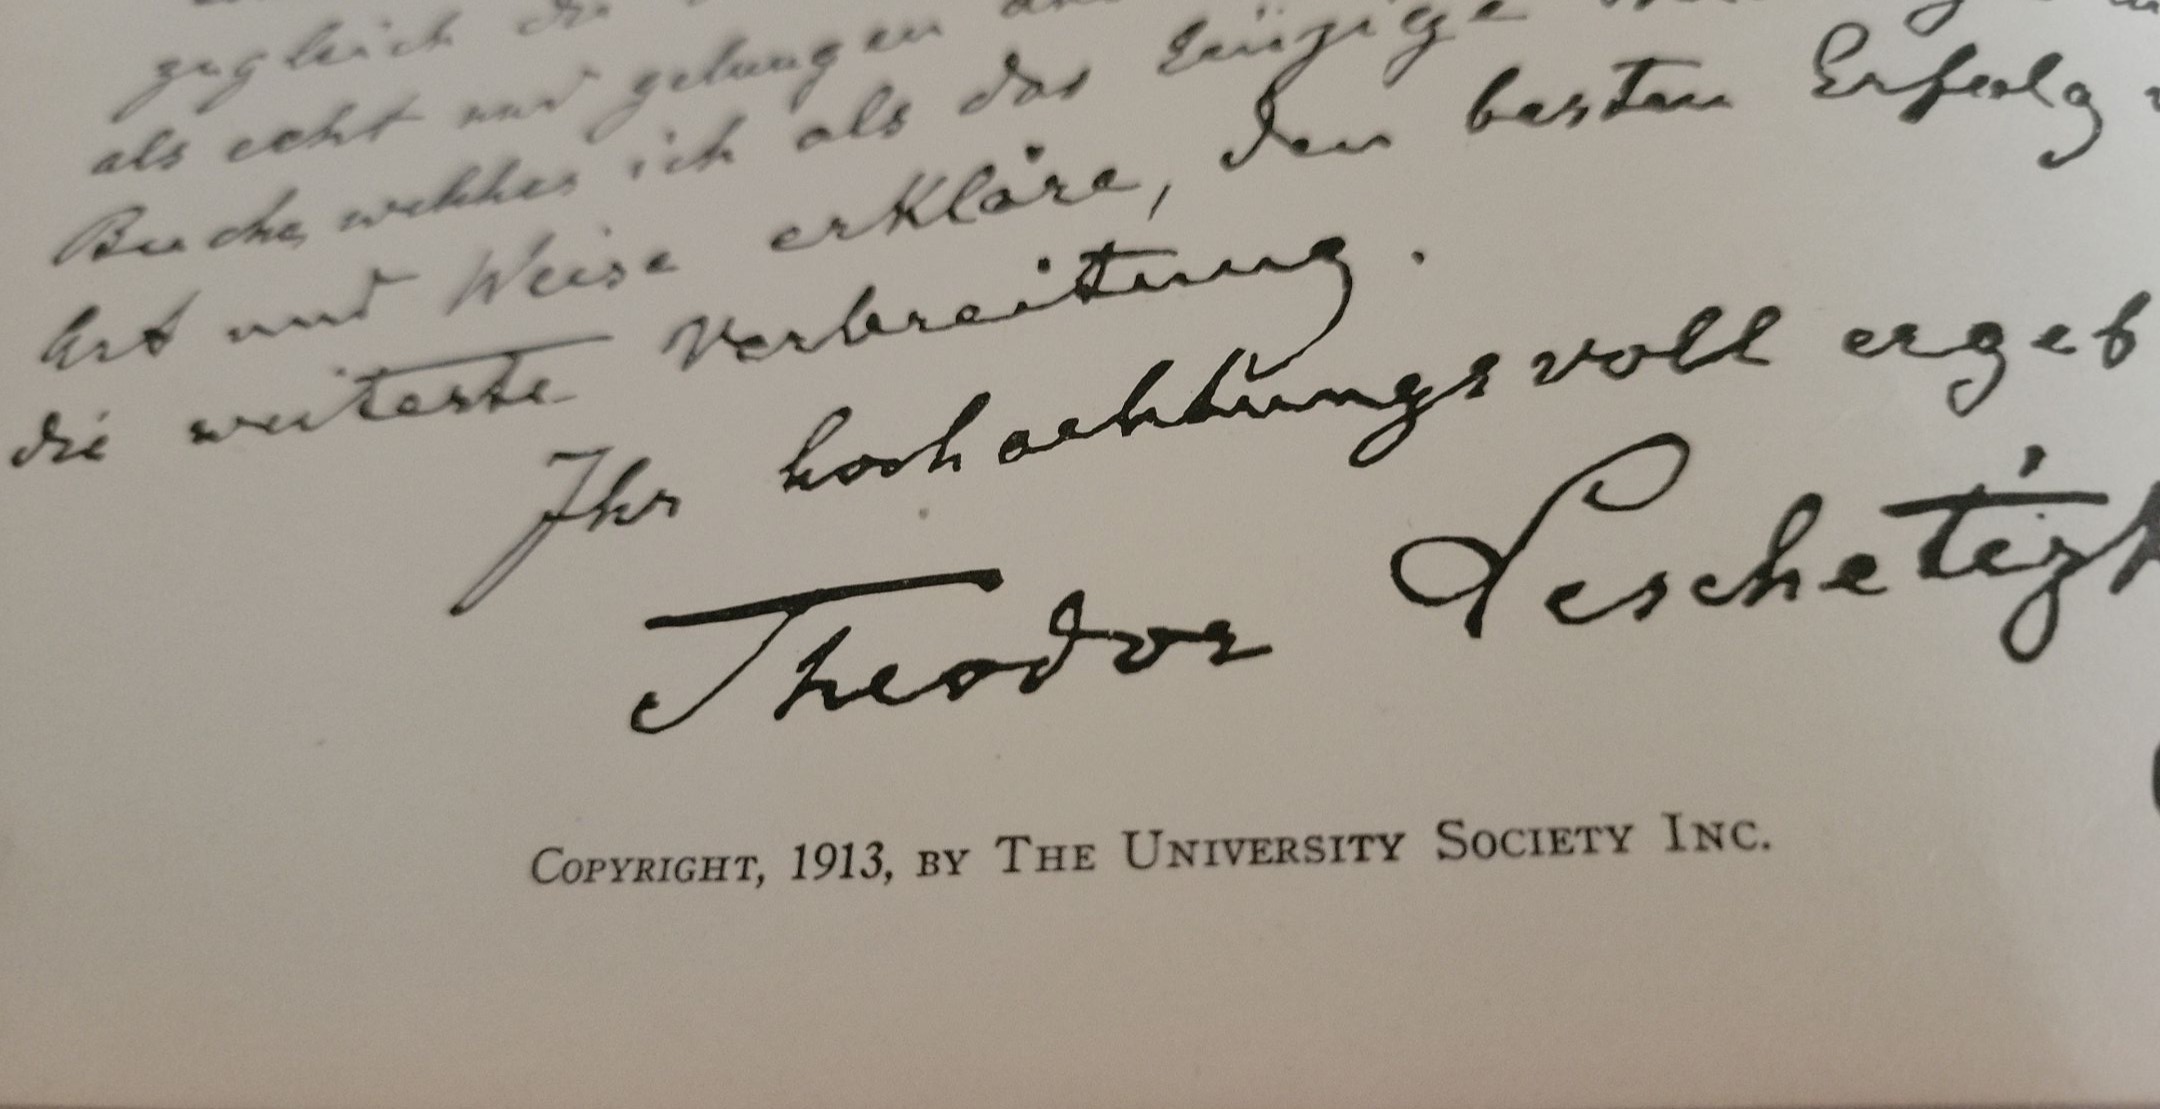 zugleich die
als echt und gelungen
Buche, welches ich als das Einzige
Art und Weise erkläre, den besten Erfolg
die weiteste Verbreitung.
Ihr hochachtungsvoll ergeb
Theodor Leschetizk
COPYRIGHT, 1913, BY THE UNIVERSITY SOCIETY INC.